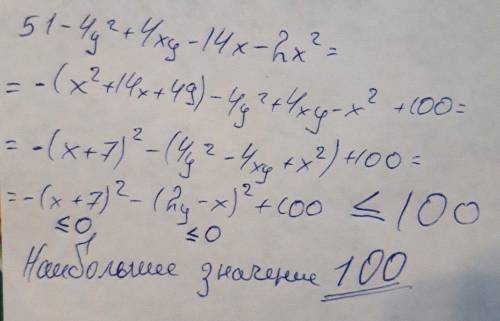 51-4y²+4xy-14x-2x²=
=-(x²+14x+49)-4y²+4xy-x²+100=
=-(x+7)²-(4y²-4xy+x²)+100=
=-(x+7)²-(2y-x)²+100 ≤100
≤0, ≤0
Наибольшее значение 100